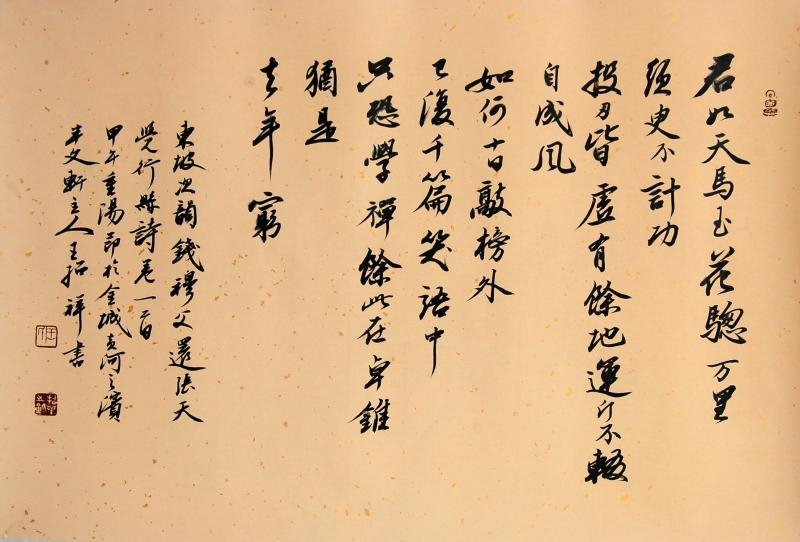 君如天馬玉花驄万里
須臾不計功
投刃皆虛有餘地運斤不輟
自成風
如何十日敲榜外
已復千篇笑語中
只恐學禪餘此在卓錐
猶是
去年窮
東坡次韻錢穆父還張天
覺行縣詩卷一首
甲午重陽節於金城黃河之濱
文軒主人王拓祥書